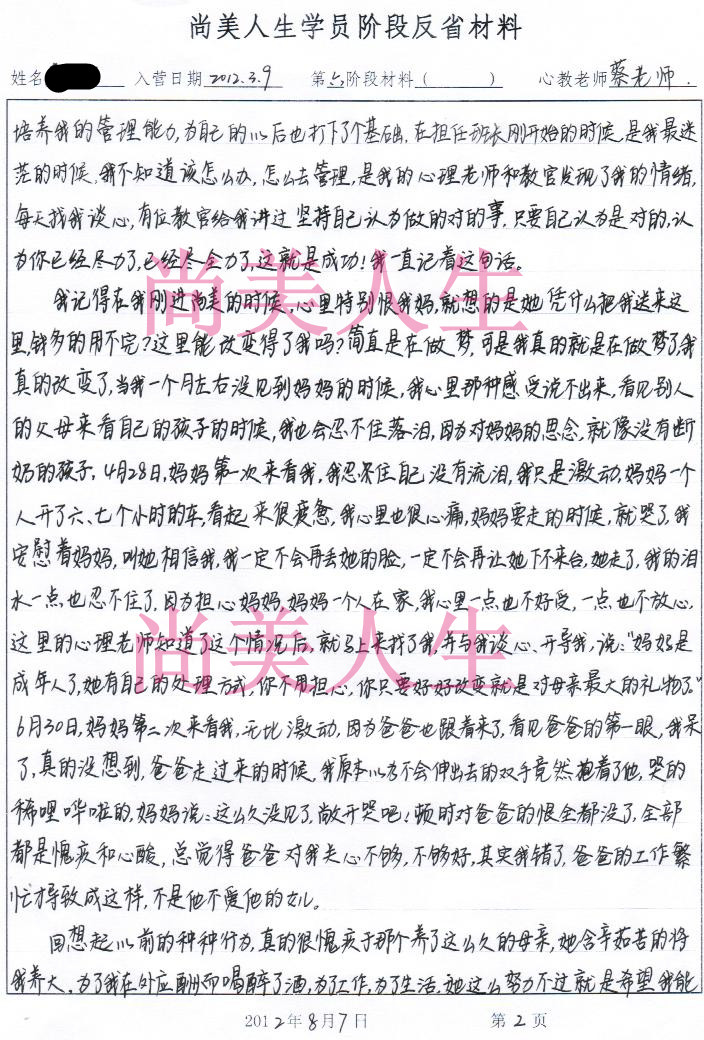 尚美人生学员阶段反省材料
姓名 入营日期 2012.3.9 第六阶段材料（ ） 心教老师 蔡老师.
培养我的管理能力,为自己的以后也打下了个基础.在担任班长刚开始的时候,是我最迷
茫的时候,我不知道该怎么办,怎么去管理,是我的心理老师和教官发现了我的情绪,
每天找我谈心,有位教官给我讲过坚持自己认为做的对的事,只要自己认为是对的,认
为你已经尽力了,已经尽全力了,这就是成功!我一直记着这句话。
我记得在我刚进尚美的时候,心里特别恨我妈,就想的是她凭什么把我送来这
里,钱多的用不完?这里能改变得了我吗?简直是在做梦,可是我真的就是在做梦了,我
真的改变了,当我一个月左右没见到妈妈的时候,我心里那种感受说不出来,看见别人
的父母来看自己的孩子的时候,我也会忍不住落泪,因为对妈妈的思念,就像没有断
奶的孩子,4月28日,妈妈第一次来看我,我忍不住自己没有流泪,我只是激动,妈妈一个
人开了六、七个小时的车,看起来很疲惫,我心里也很心痛,妈妈要走的时候,就哭了,我
安慰着妈妈,叫她相信我,我一定不会再丢她的脸,一定不会再让她下不来台,她走了,我的泪
水一点也忍不住了,因为担心妈妈,妈妈一个人在家,我心里一点也不好受,一点也不放心,
这里的心理老师知道了这个情况后,就马上来找了我,并与我谈心、开导我,说:"妈妈是
成年人了,她有自己的处理方式,你不用担心,你只要好好改变就是对母亲最大的礼物了。"
6月30日,妈妈第二次来看我,无比激动,因为爸爸也跟着来了,看见爸爸的第一眼,我呆
了,真的没想到,爸爸走过来的时候,我原本以为不会伸出去的双手竟然抱着了他,哭的
稀哩哗啦的,妈妈说:这么久没见了,敞开哭吧!顿时对爸爸的恨全都没了,全部
都是愧疚和心酸,总觉得爸爸对我关心不够,不够好,其实我错了,爸爸的工作繁
忙才导致成这样,不是他不爱他的女儿。
回想起以前的种种行为,真的很愧疚于那个养了这么久的母亲,她含辛茹苦的将
我养大,为了我在外应酬而喝醉了酒,为了工作,为了生活,她这么努力不过就是希望我能
2012年8月7日 第2页
尚美人生
尚美人生